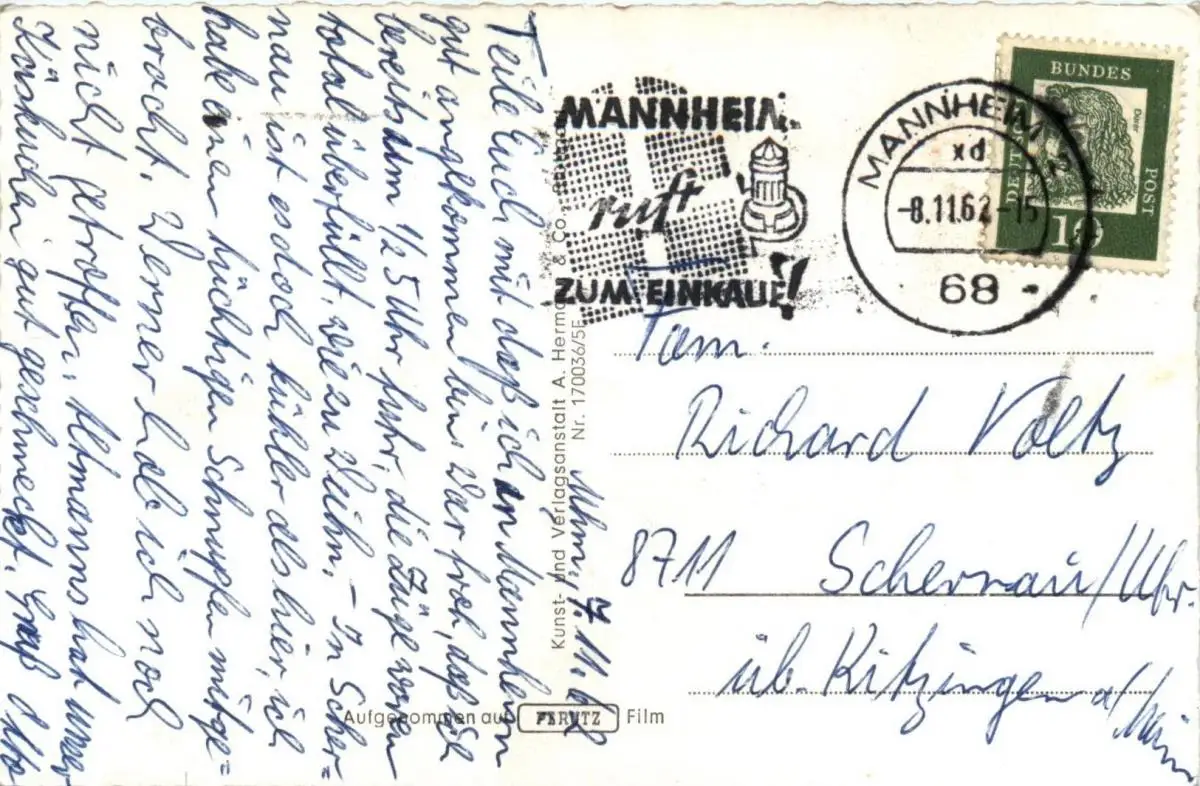 Mhm. 7.11.62
Teile Euch mit daß ich in Mannheim
gut angekommen bin. War froh, daß ich
bereits um ½ 5 Uhr fuhr, die Züge waren
total überfüllt, wie zu Weihn. – In Scher=
nau ist es doch kühler als hier, ich
habe einen tüchtigen Schnupfen mitge=
bracht. Werner habe ich noch
nicht getroffen. Altmanns hat unser
Käskuchen gut geschmeckt. Gruß Otto
MANNHEIM
ruft
ZUM EINKAUF!
MANNHEIM 2
xd
-8.11.62-15
68
BUNDES
POST
DEUTSCHE
Dürer
10
Fam.
Richard Voltz
8711 Schernau/Ufr.
üb. Kitzingen a/Main
Kunst- und Verlagsanstalt A. Herm & Co.,
Nr. 170036/5E
Aufgenommen auf PERUTZ Film